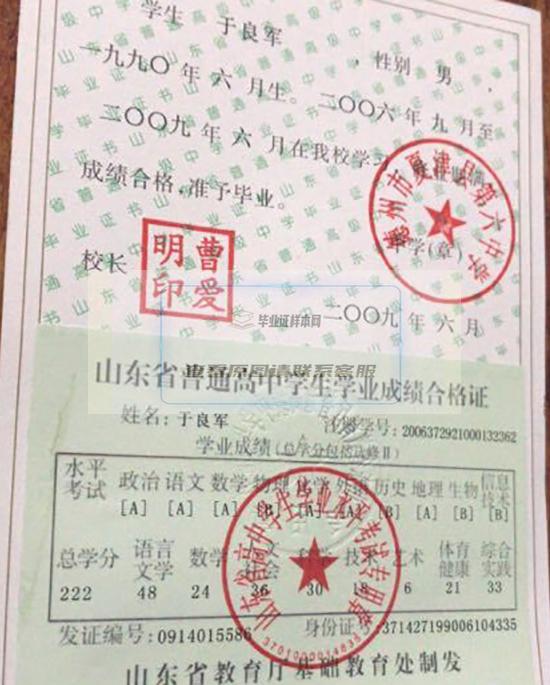 学生 于良军 ,性别 男,
一九九〇年六月生。二〇〇六年九月至
二〇〇九年六月在我校学习
成绩合格,准予毕业。
德州市夏津县第六中学
中学(章)
校长
曹爱明印
二〇〇九年六月
毕业证样本网
山东省普通高中学生学业成绩合格证
姓名:于良军 注册学号:2006372921000132362
学业成绩(总学分包括选修Ⅱ)
水平考试 政治 语文 数学 物理 化学 外语 历史 地理 生物 信息技术
[A] [A] [A] [B] [A] [B] [A] [B] [B]
总学分 语言文学 数学 技术 艺术 体育健康 综合实践
222 48 24 36 30 18 6 21 33
发证编号:0914015586 身份证号:371427199006104335
山东省教育厅基础教育处制发